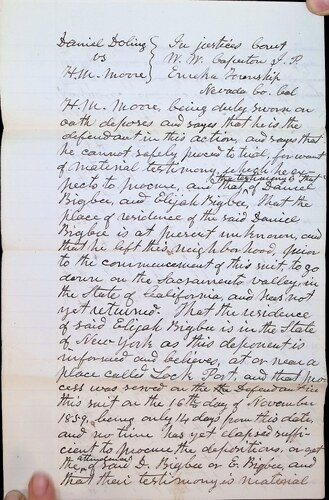 Daniel Doling } In justices Court
vs } W. W. Caperton J. P.
H. M. Moore } Eureka Township
Nevada Co. Cal
H. M. Moore, being duly sworn on
oath deposes and says that he is the
defendant in this action, and says that
he cannot safely proceed to trial, for want
of material testimony, which he ex
pects to procure, and that the testimony is that of Daniel
Bigbee, and Elijah Bigbee, That the
place of residence of the said Daniel
Bigbee is at present unknown, and
that he left this neighborhood, prior
to the commencement of this suit, to go
down on the Sacramento Valley, in
the State of California, and has not
yet returned. That the residence
of said Elijah Bigbee is in the State
of New York as this deponent is
informed and believes, at or near a
place called Lock Port, and that pro
cess was served on the the Defendant in
this suit on the 16th day of November
1859, being only 14 days from this date,
and no time has yet elapsed suffi-
cient to procure the depositions, or get
the attendance of said D. Bigbee or E. Bigbee, and
that their testimony is material